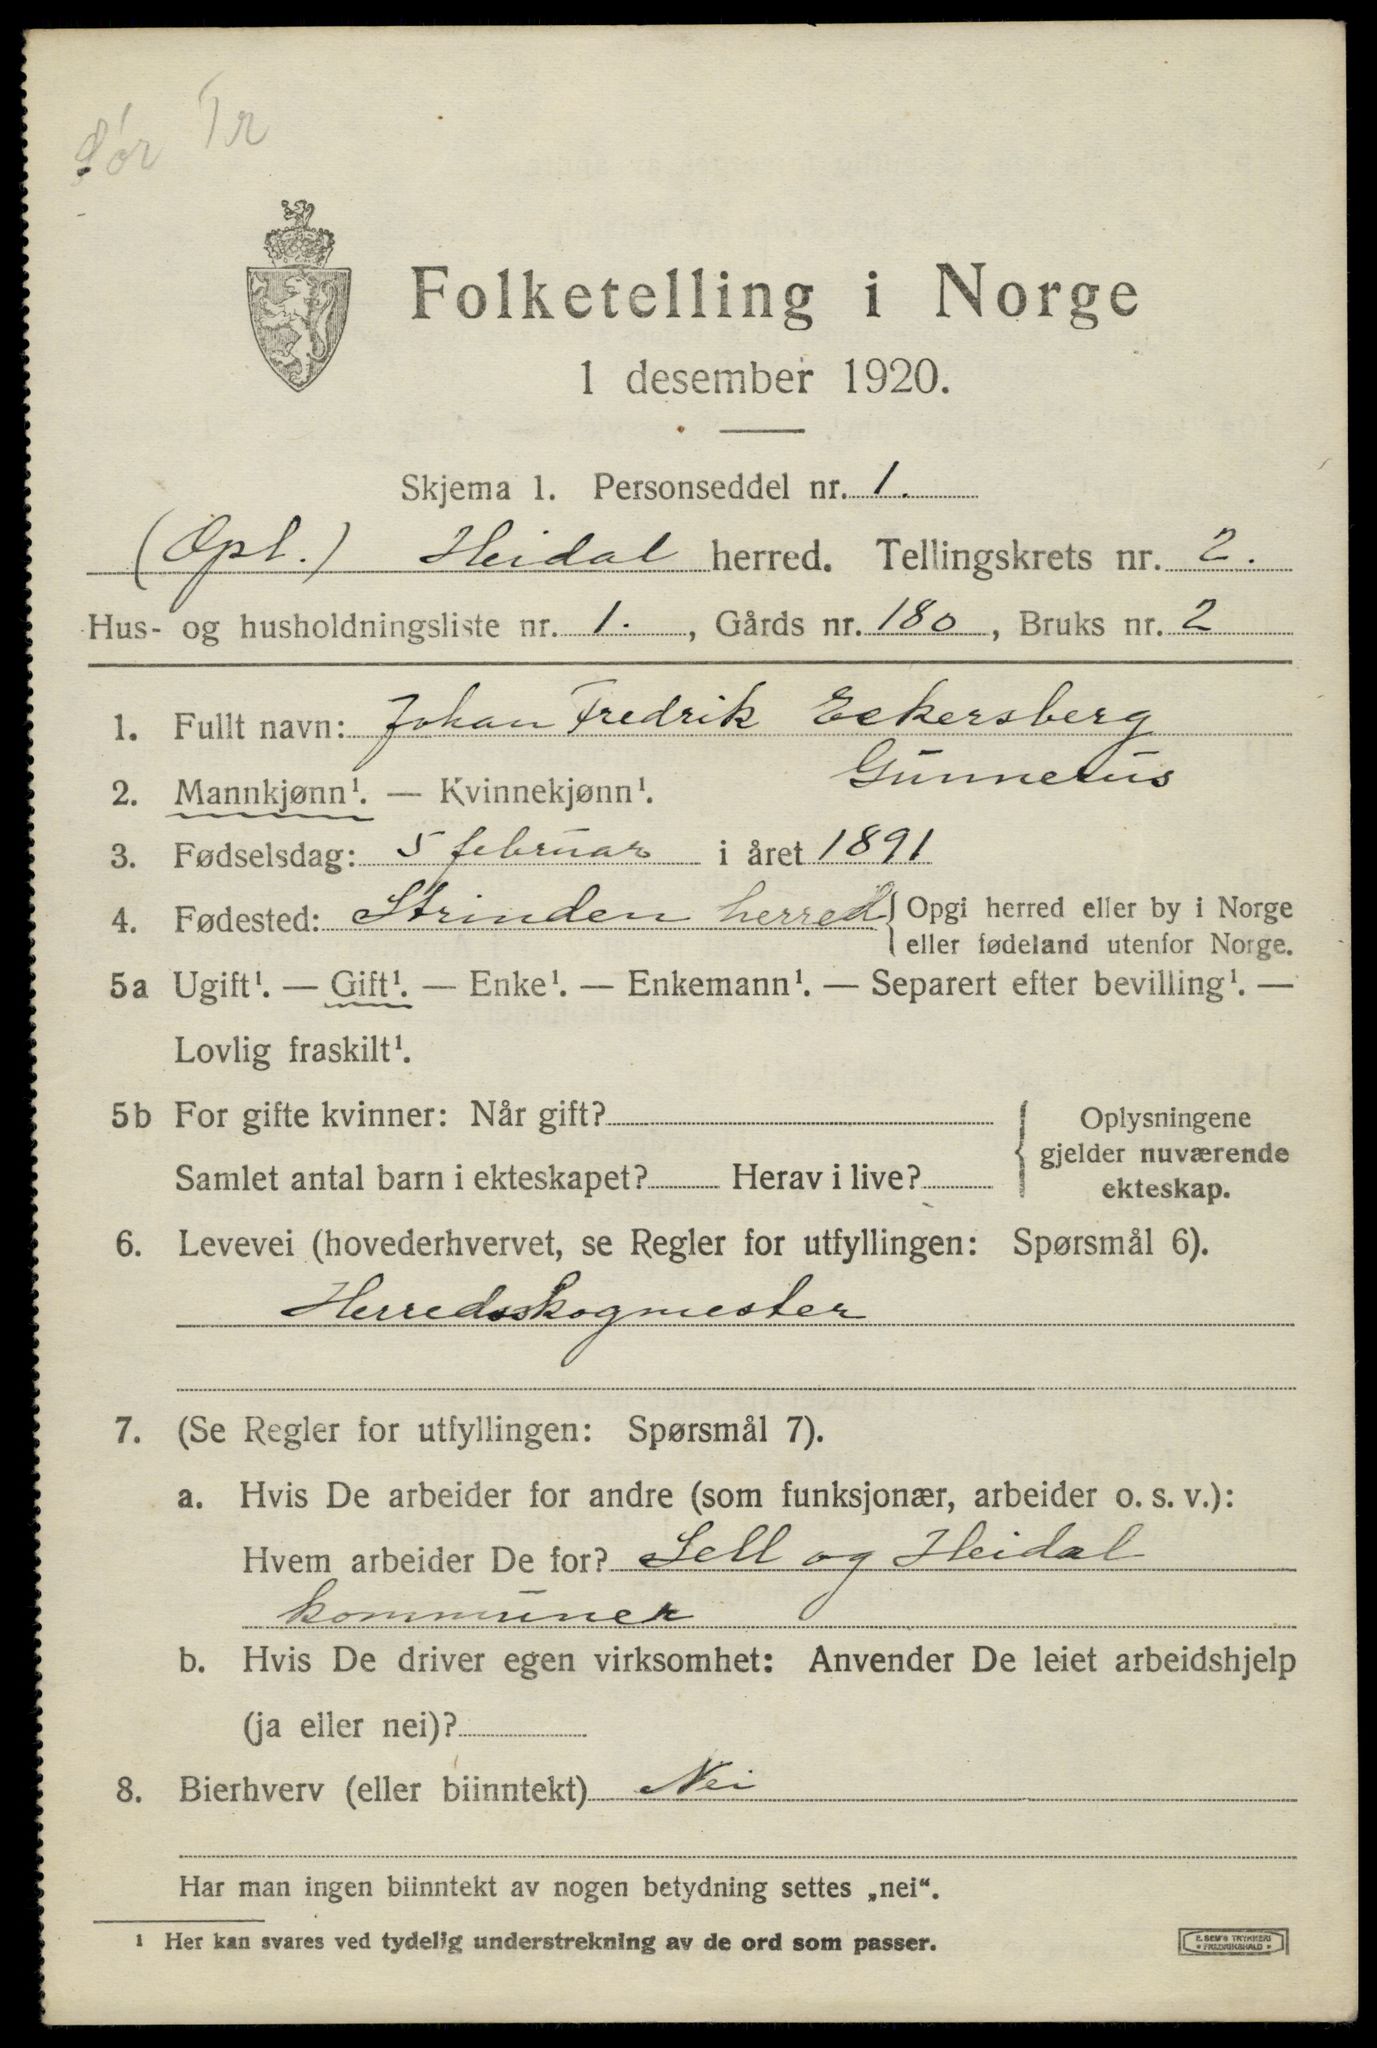 Sør Tr
Folketelling i Norge
1 desember 1920.
Skjema 1. Personseddel nr. 1.
(Opl.) Heidal herred. Tellingskrets nr. 2.
Hus- og husholdningsliste nr. 1. , Gårds nr. 180, Bruks nr. 2
1. Fullt navn: Johan Fredrik Eckersberg
Gunnerus
2. Mannkjønn¹. — Kvinnekjønn¹.
3. Fødselsdag: 5 februar i året 1891
4. Fødested: Strinden herred { Opgi herred eller by i Norge
eller fødeland utenfor Norge.
5a Ugift¹. — Gift¹. — Enke¹. — Enkemann¹. — Separert efter bevilling¹. —
Lovlig fraskilt¹.
5b For gifte kvinner: Når gift?
Samlet antal barn i ekteskapet? Herav i live?
Oplysningene
gjelder nuværende
ekteskap.
6. Levevei (hovederhvervet, se Regler for utfyllingen: Spørsmål 6).
Herredsskogmester
7. (Se Regler for utfyllingen: Spørsmål 7).
a. Hvis De arbeider for andre (som funksjonær, arbeider o. s. v.):
Hvem arbeider De for? Sell og Heidal
kommuner
b. Hvis De driver egen virksomhet: Anvender De leiet arbeidshjelp
(ja eller nei)?
8. Bierhverv (eller biinntekt) Nei
Har man ingen biinntekt av nogen betydning settes „nei“.
¹ Her kan svares ved tydelig understrekning av de ord som passer.
E. SEM'S TRYKKERI
* FREDRIKSHALD *